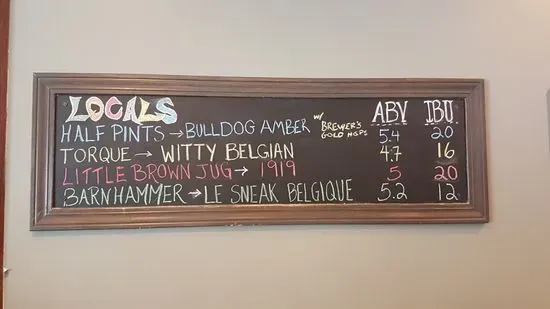 LOCALS ABV IBU
HALF PINTS → BULLDOG AMBER w/ BREWER'S GOLD HOPS 5.4 20
TORQUE → WITTY BELGIAN 4.7 16
LITTLE BROWN JUG → 1919 5 20
BARNHAMMER → LE SNEAK BELGIQUE 5.2 12